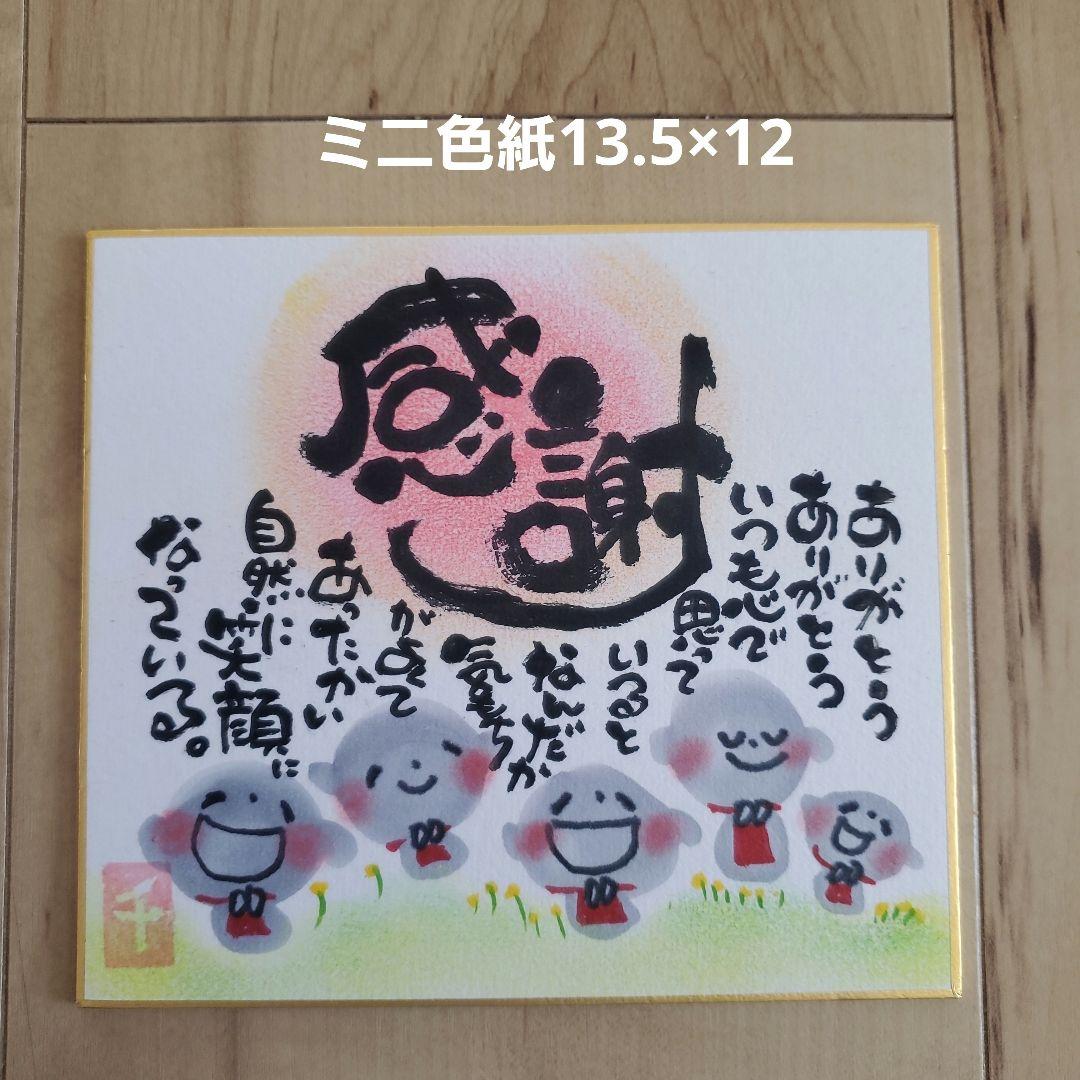 ミニ色紙13.5×12
感謝
ありがとう
ありがとう
いつも心で
思って
いつると
なんだか
気もちが
がよくて
あったかい
自然に
笑顔に
なっている。
千